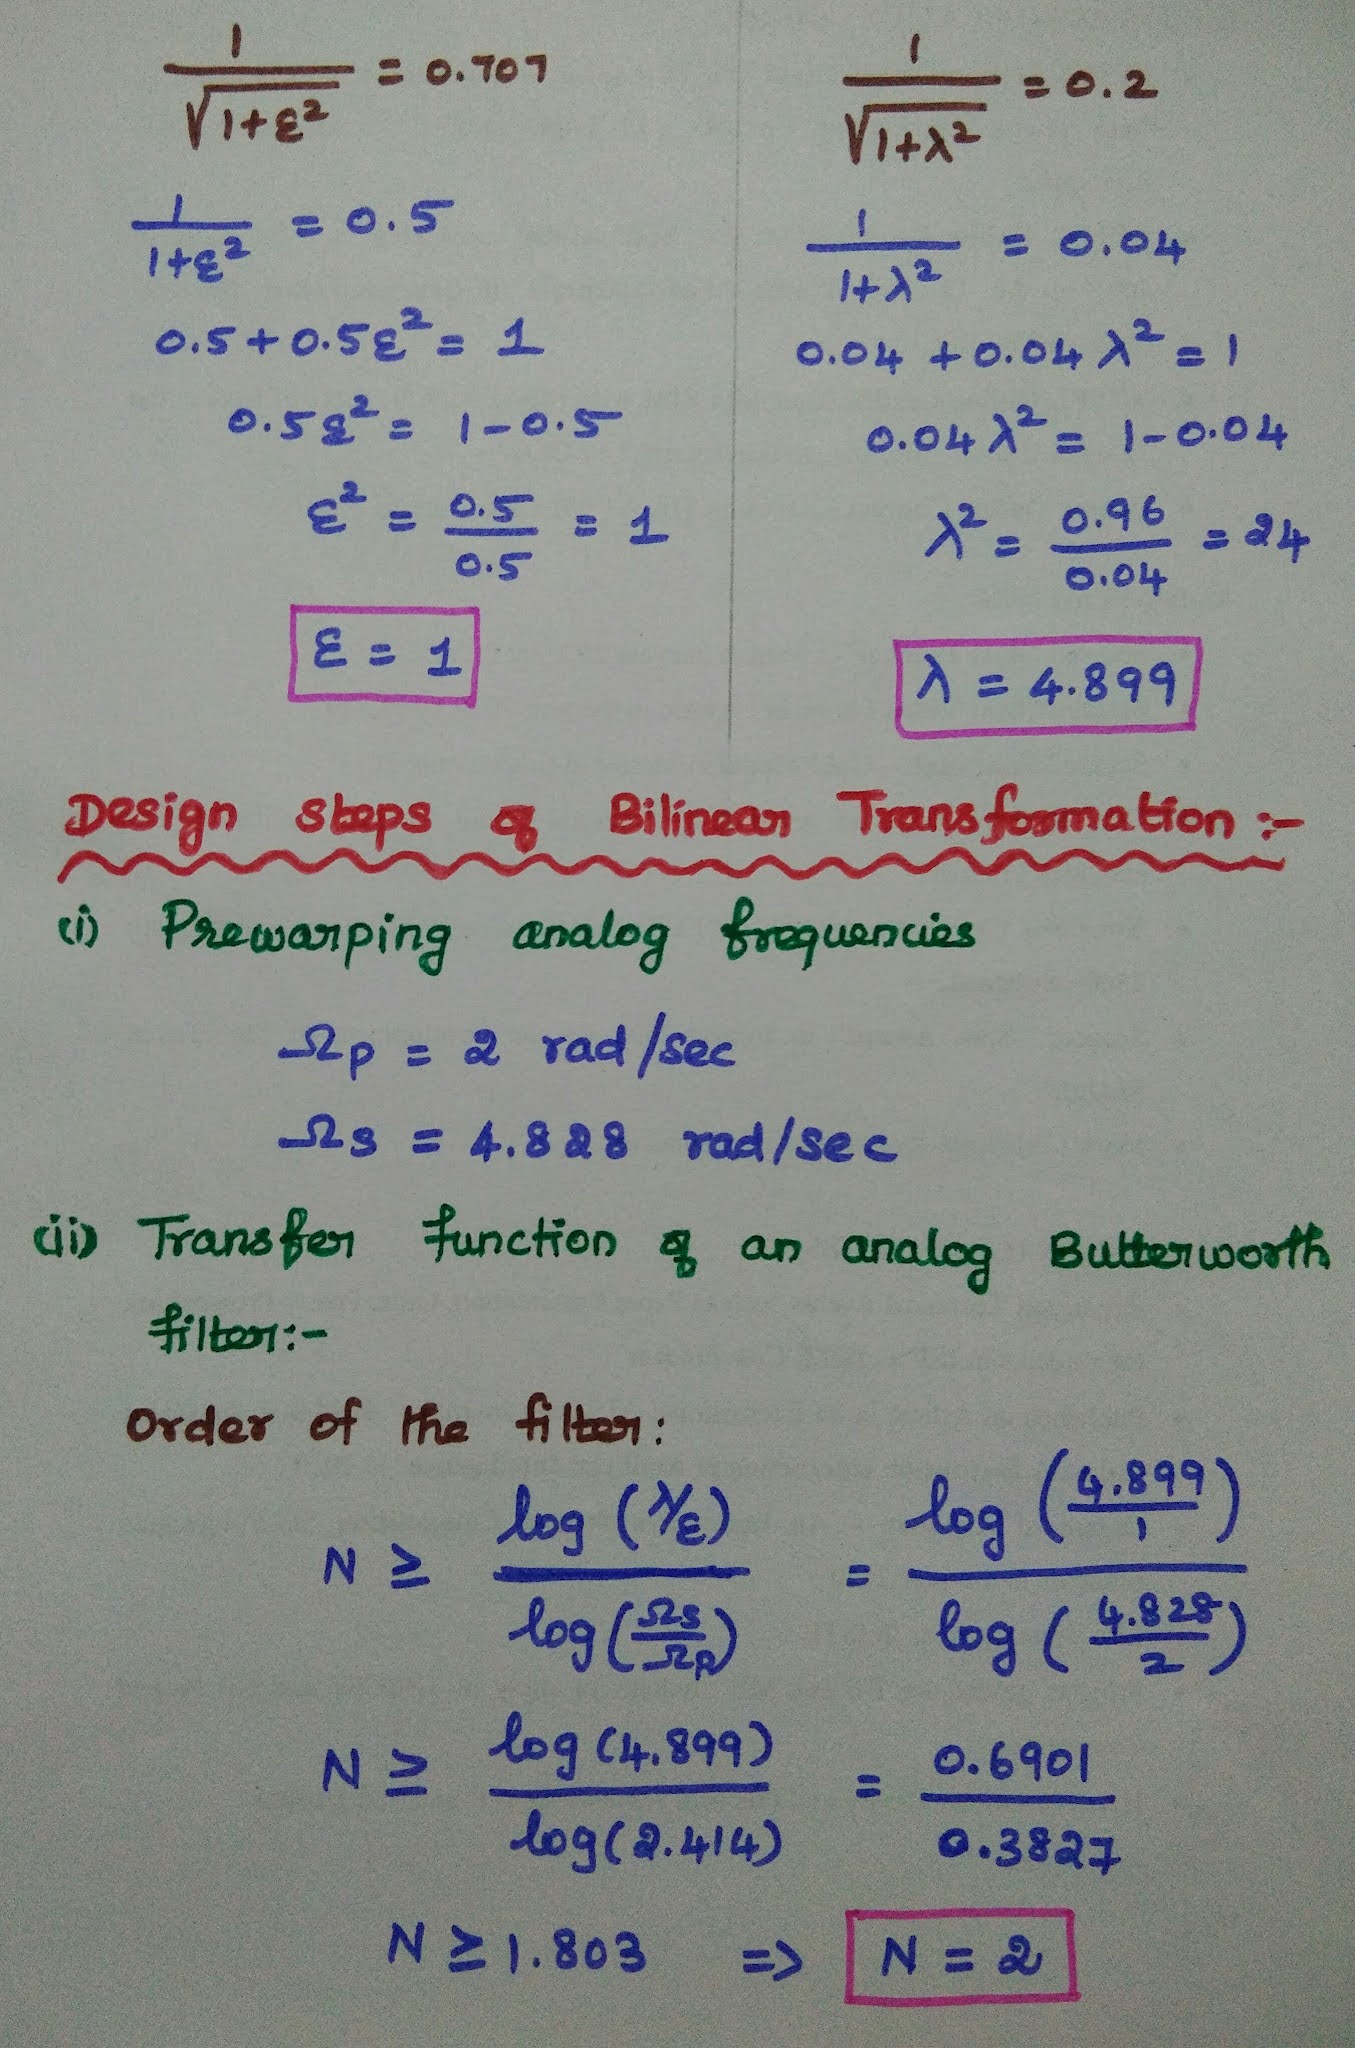 1/√(1+ε²) = 0.707
1/(1+ε²) = 0.5
0.5+0.5ε² = 1
0.5ε² = 1-0.5
ε² = 0.5/0.5 = 1
ε = 1
1/√(1+λ²) = 0.2
1/(1+λ²) = 0.04
0.04 + 0.04 λ² = 1
0.04 λ² = 1-0.04
λ² = 0.96/0.04 = 24
λ = 4.899
Design steps of Bilinear Transformation :-
(i) Prewarping analog frequencies
Ωp = 2 rad/sec
Ωs = 4.828 rad/sec
(ii) Transfer function of an analog Butterworth
filter:-
Order of the filter:
N ≥ log(λ/ε)/log(Ωs/Ωp) = log(4.899/1)/log(4.828/2)
N ≥ log(4.899)/log(2.414) = 0.6901/0.3827
N ≥ 1.803 => N = 2